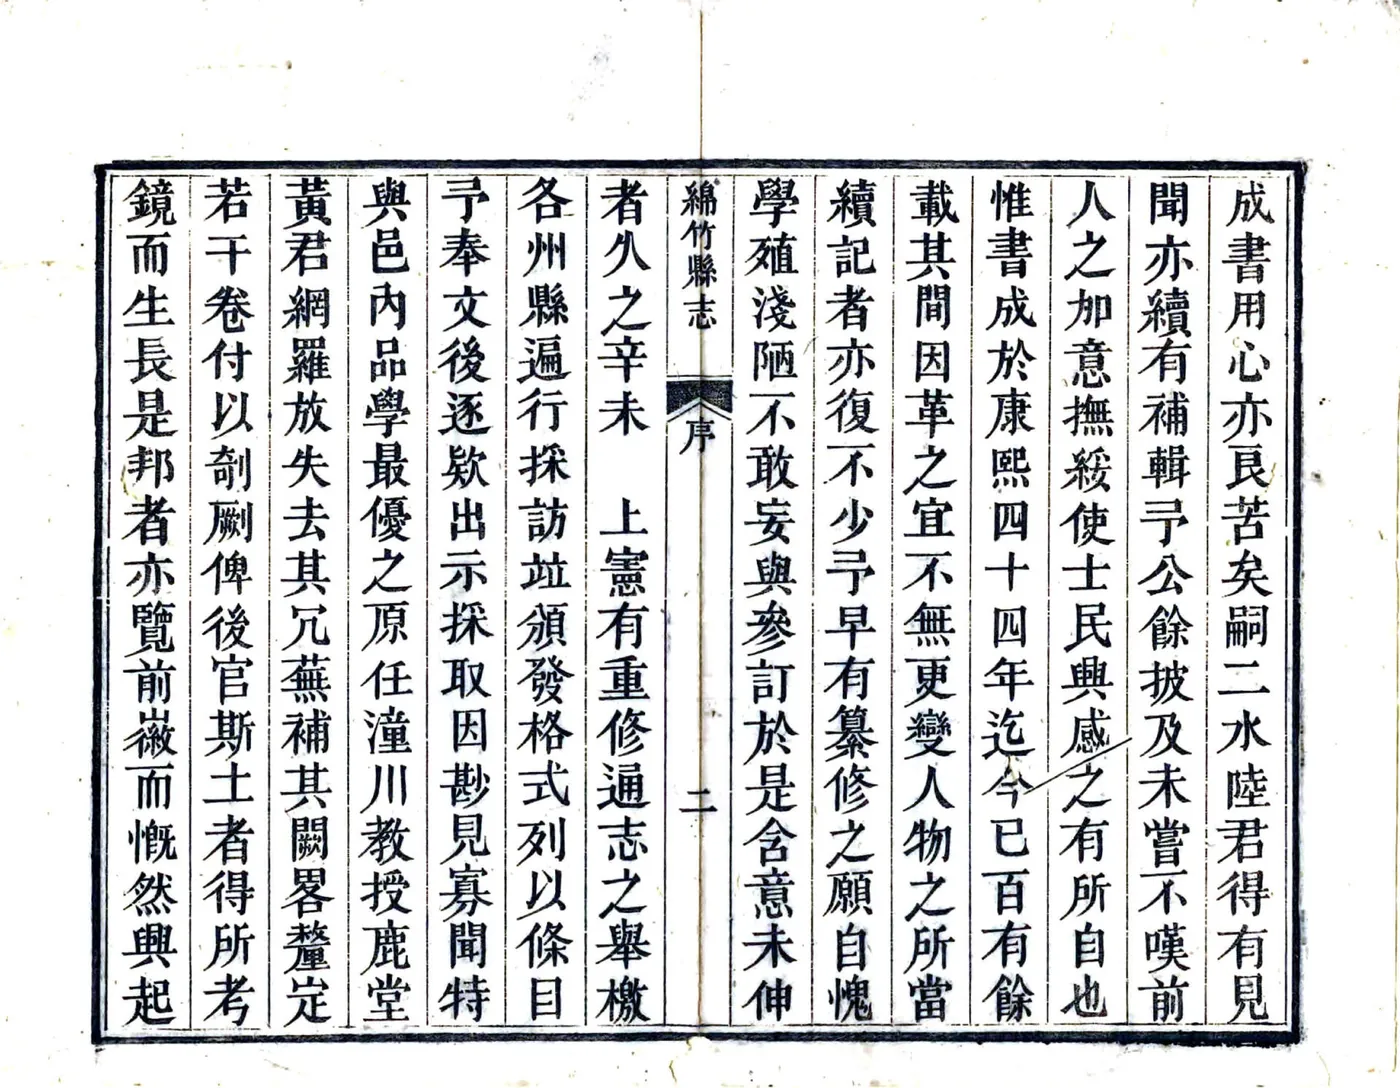 成書用心亦良苦矣嗣二水陸君得有見
聞亦續有補輯予公餘披及未嘗不嘆前
人之加意撫綏使士民興感之有所自也
惟書成於康熙四十四年迄今已百有餘
載其間因革之宜不無更變人物之所當
續記者亦復不少予早有纂修之願自愧
學殖淺陋不敢妄與參訂於是含意未伸
綿竹縣志
序
二
者久之辛未　上憲有重修通志之舉檄
各州縣遍行採訪竝頒發格式列以條目
予奉文後逐欵出示採取因尠見寡聞特
與邑內品學最優之原任潼川教授鹿堂
黃君網羅放失去其冗蕪補其闕畧釐定
若干卷付以剞劂俾後官斯土者得所考
鏡而生長是邦者亦覽前徽而慨然興起